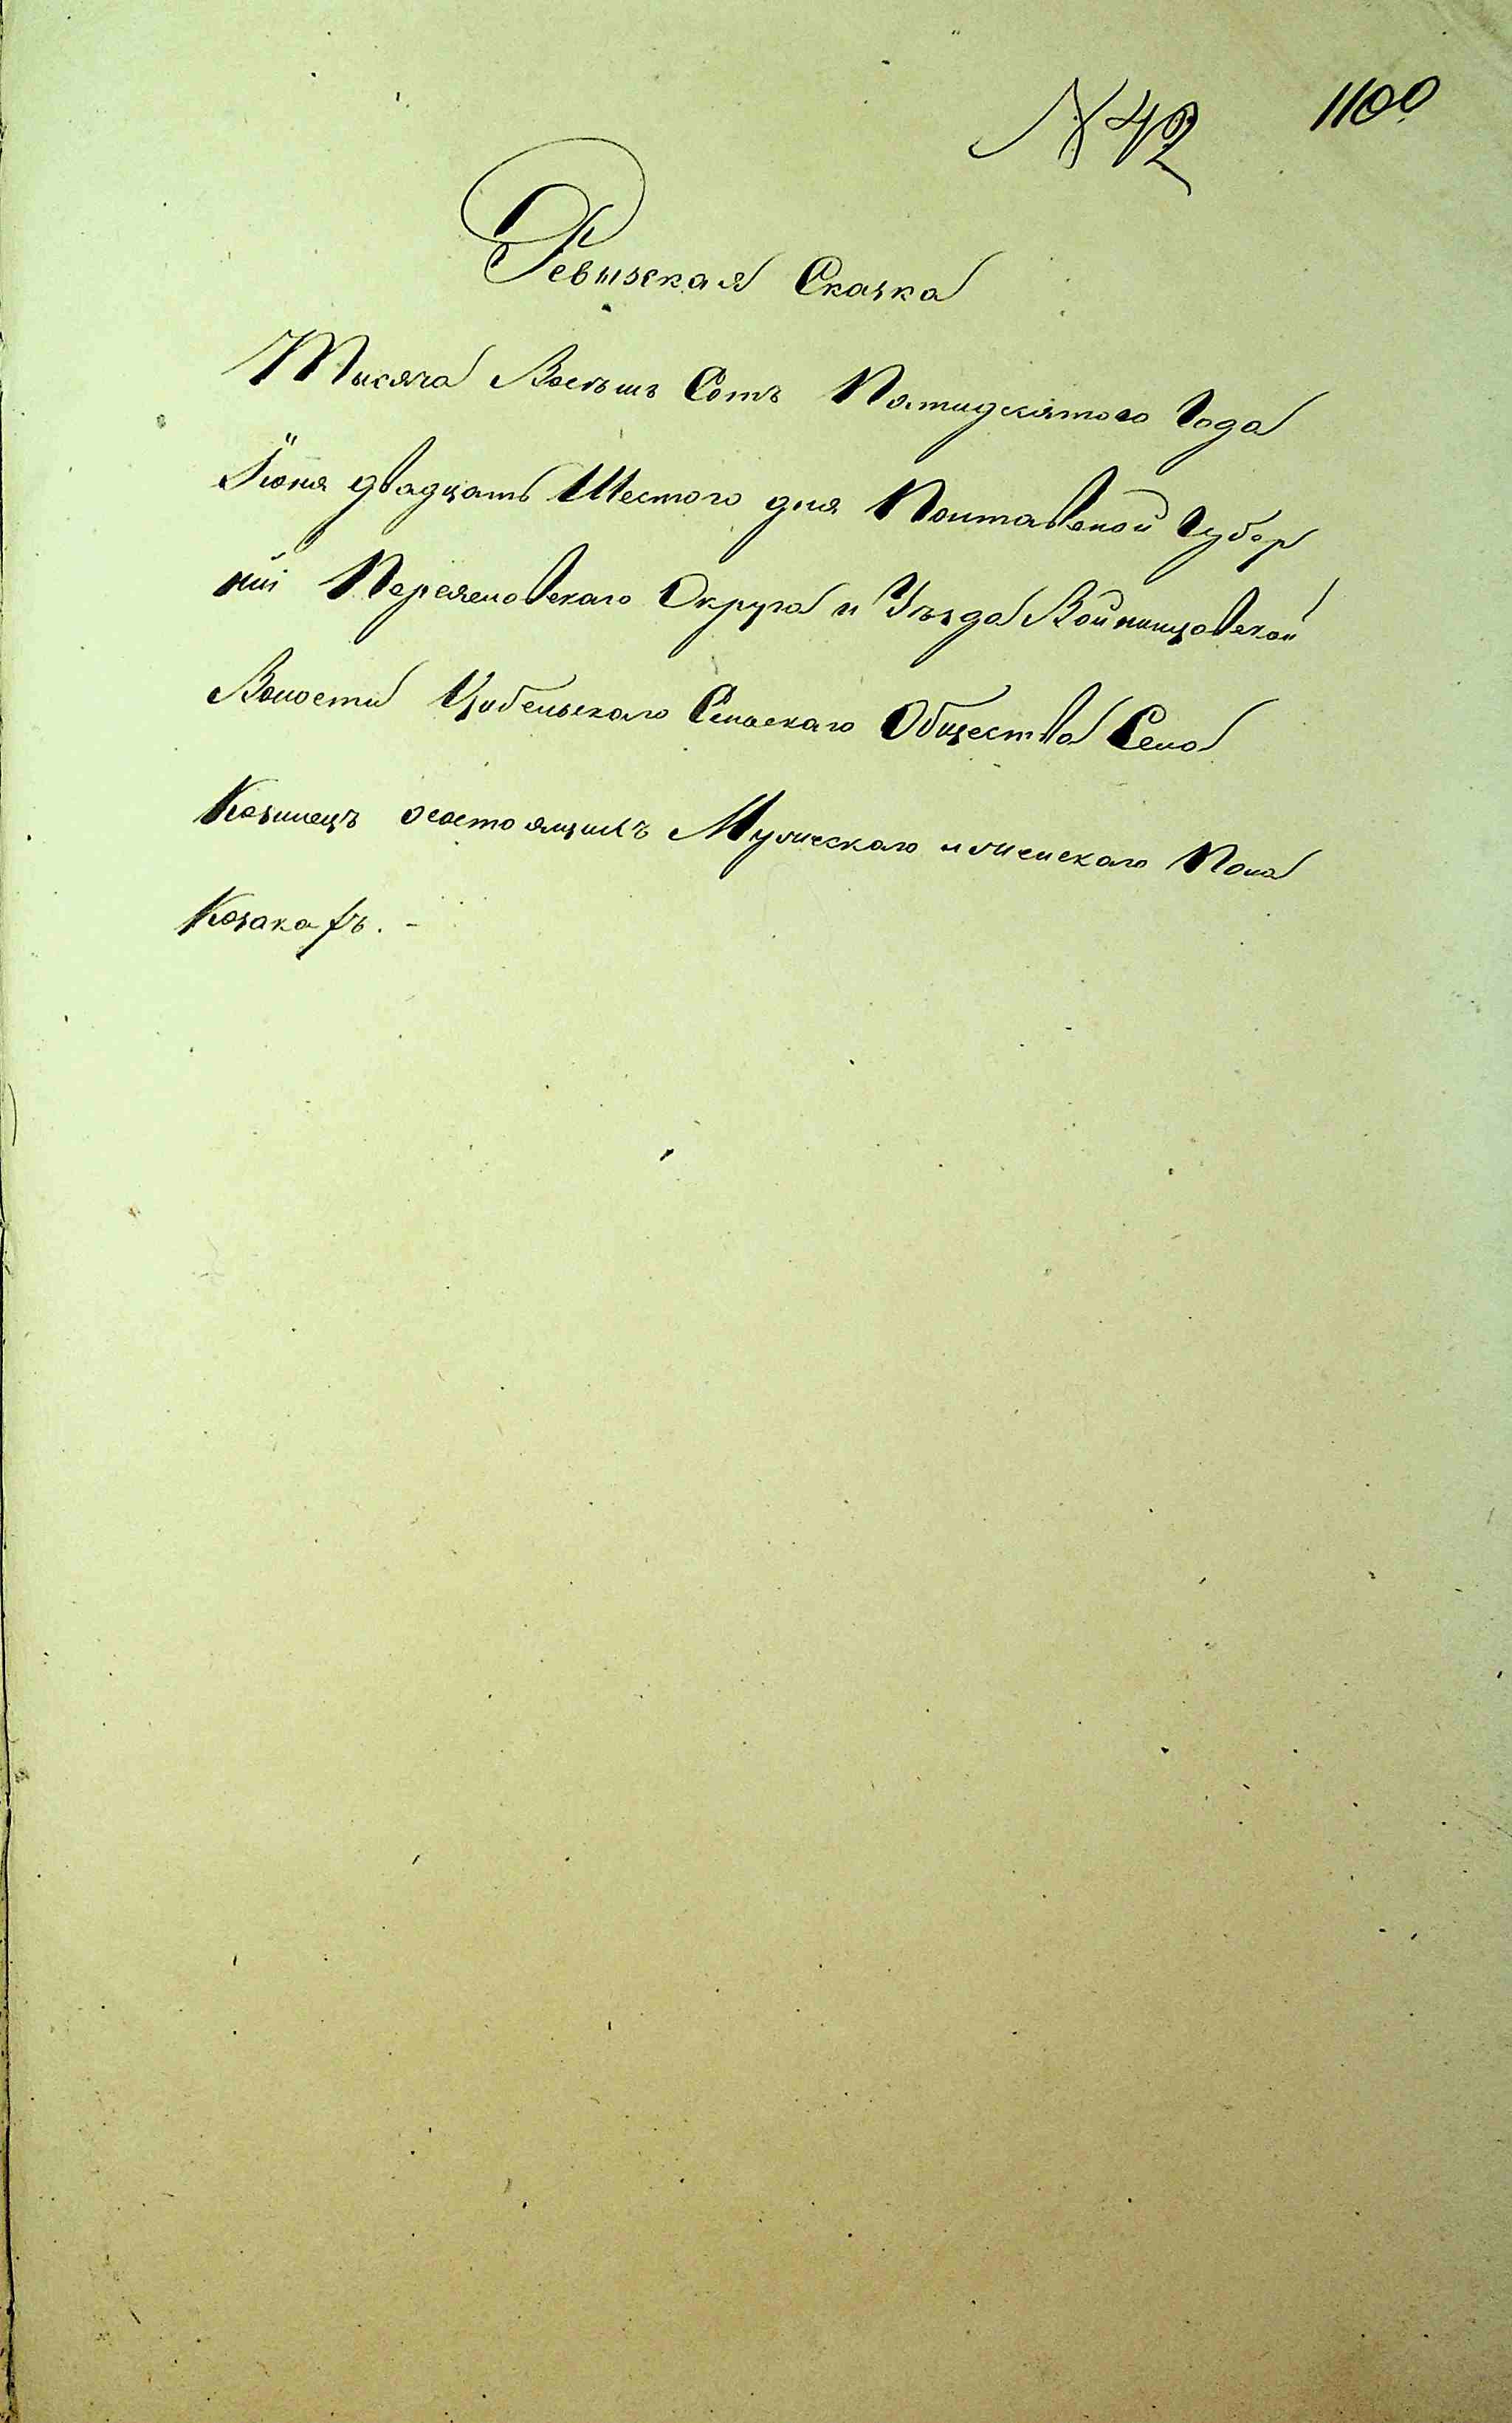 № 42 1100
Ревизская Сказка
Тысяча Восемь Сотъ Пятидесятого Года
Іюня двадцать Шестого дня Полтавской Губер
ніи Переяславскаго Округа и Уѣзда Войтовской
Волости Цибельскаго Сельскаго Общества Села
Козинецъ о состоящихъ Мужескаго и женскаго Пола
Козакахъ. -